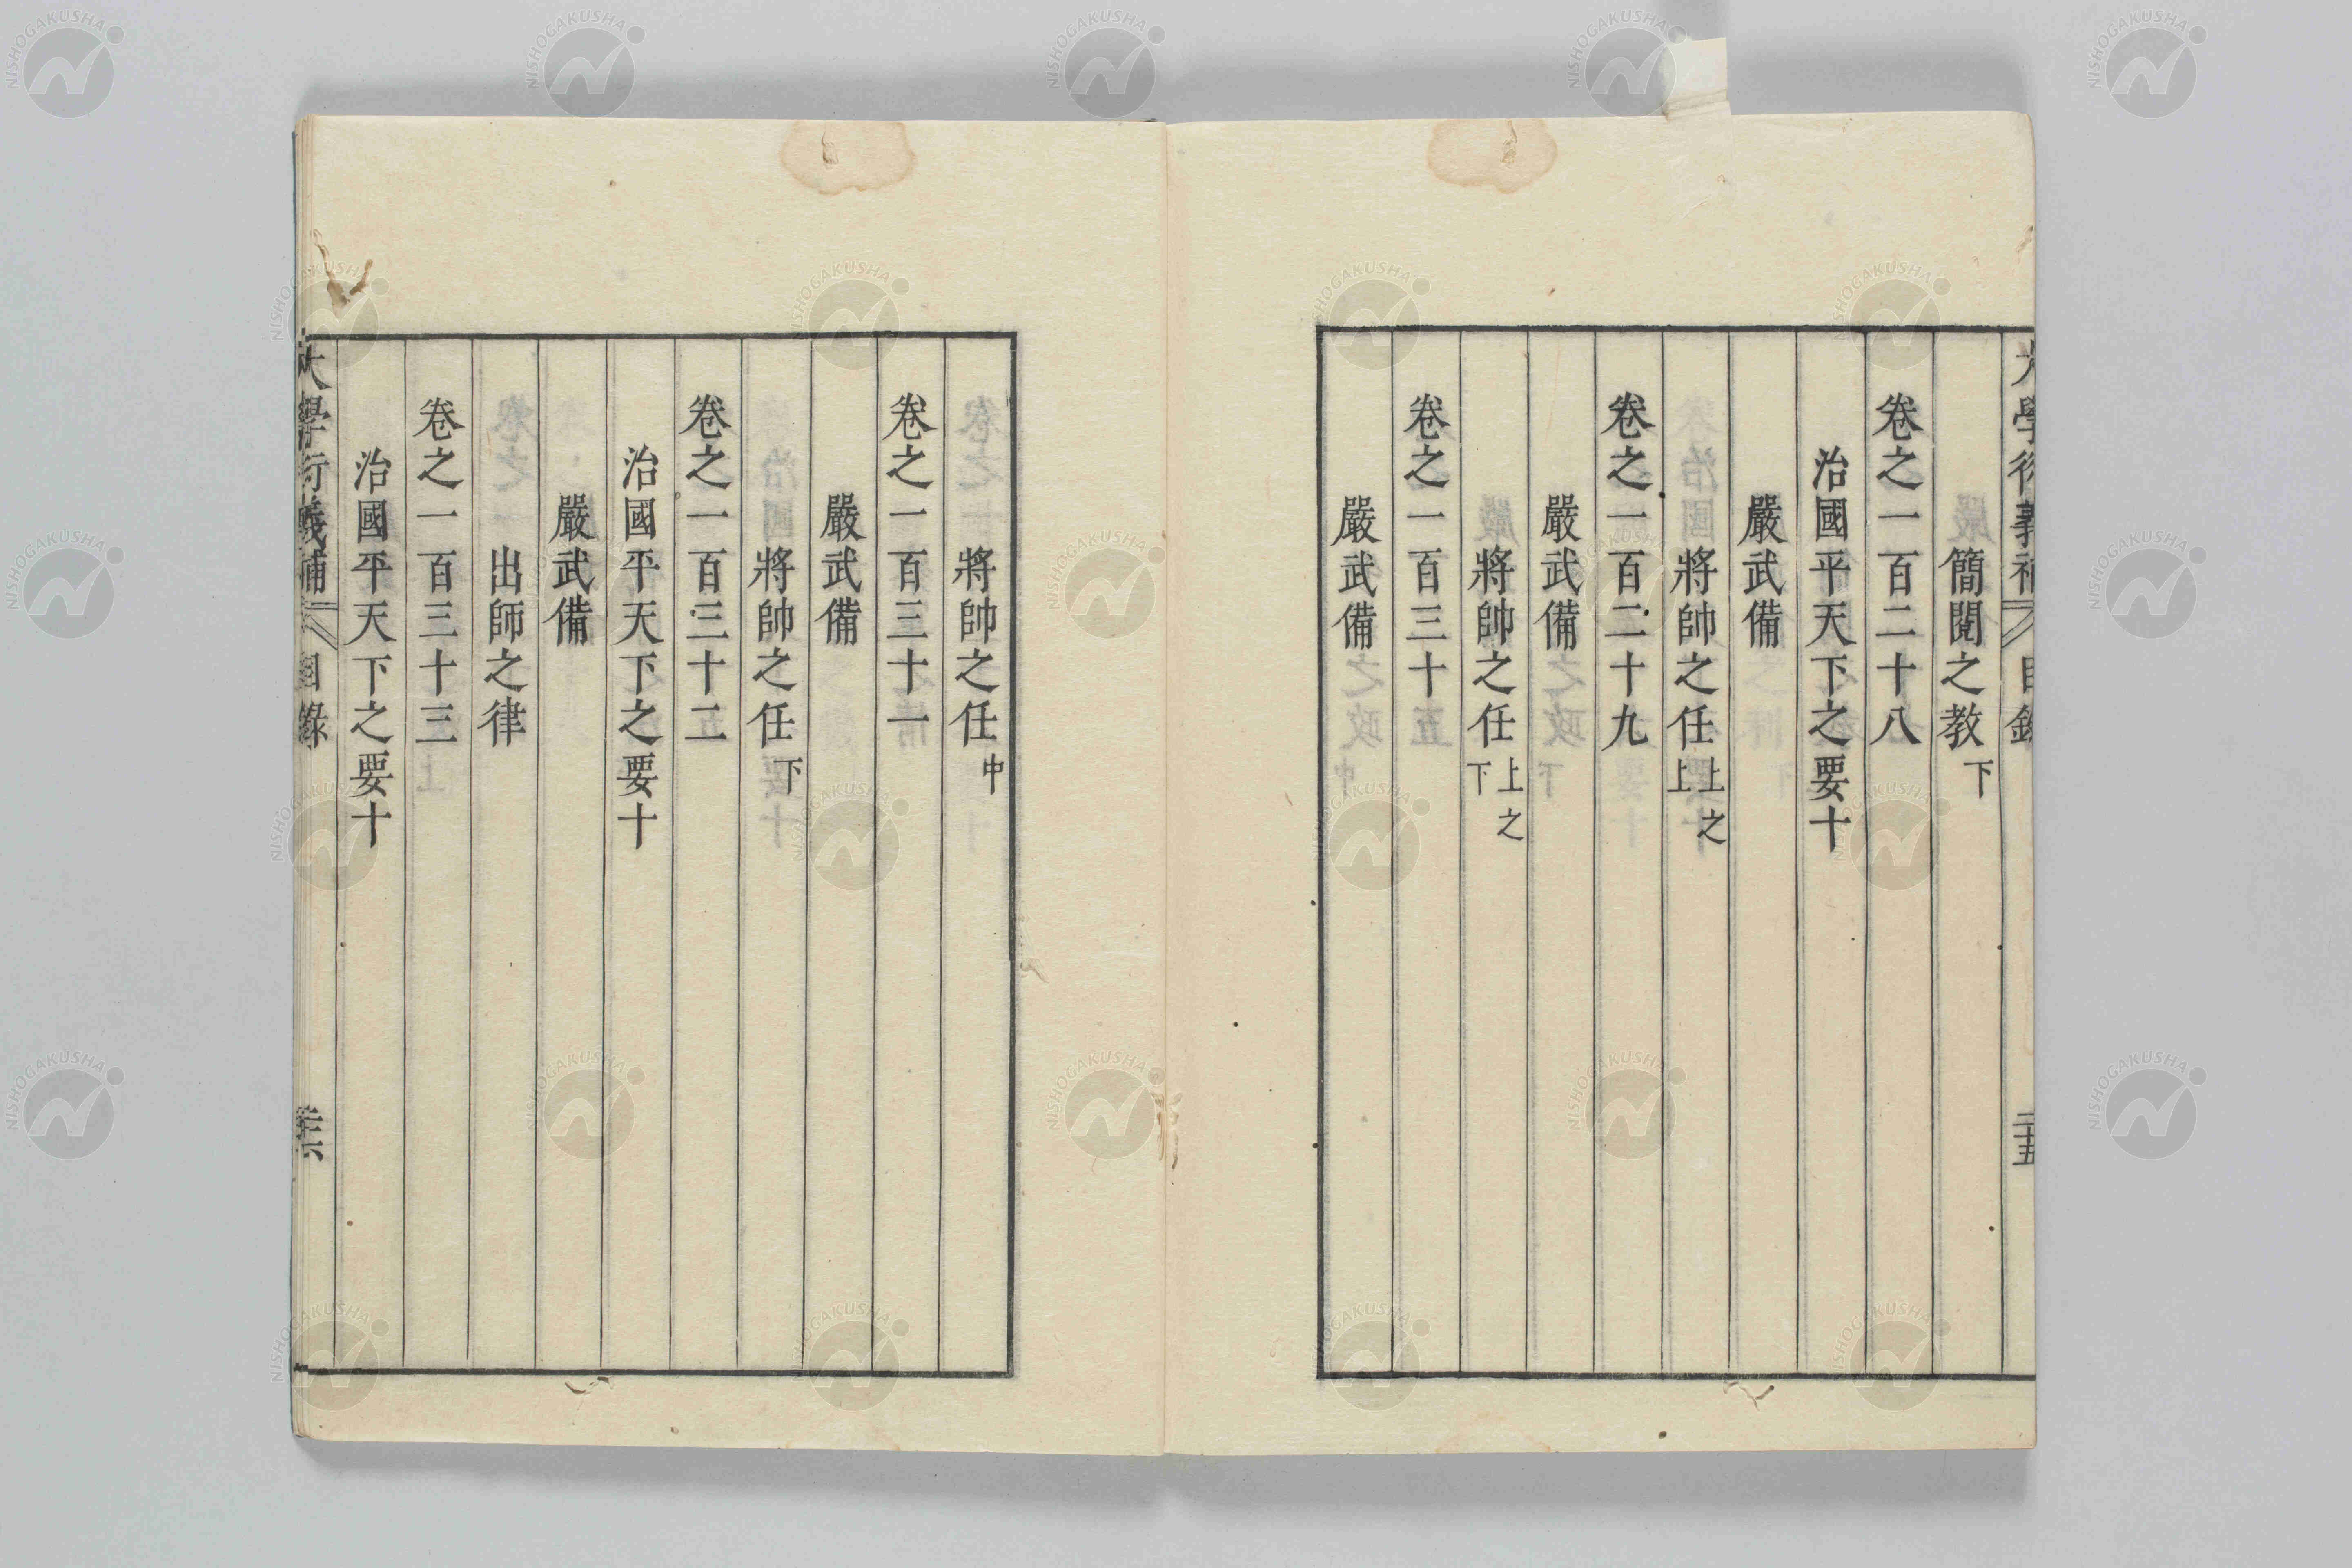 大學衍義補 目錄 二十五
簡閱之教下
卷之一百二十八
治國平天下之要十
嚴武備
將帥之任上之上
卷之一百二十九
嚴武備
將帥之任上之下
卷之一百三十
嚴武備
將帥之任中
卷之一百三十一
嚴武備
將帥之任下
卷之一百三十二
治國平天下之要十
嚴武備
出師之律
卷之一百三十三
治國平天下之要十
大學衍義補 目錄
NISHOGAKUSHA